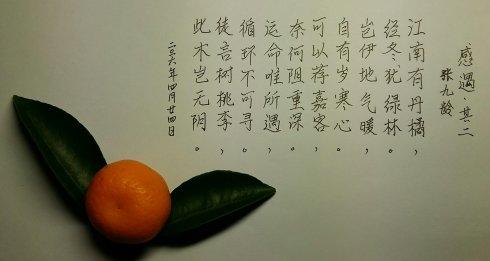 感遇·其二
张九龄
江南有丹橘，
经冬犹绿林。
岂伊地气暖，
自有岁寒心。
可以荐嘉客，
奈何阻重深。
运命唯所遇，
循环不可寻。
徒言树桃李，
此木岂无阴。
二〇一六年四月廿四日